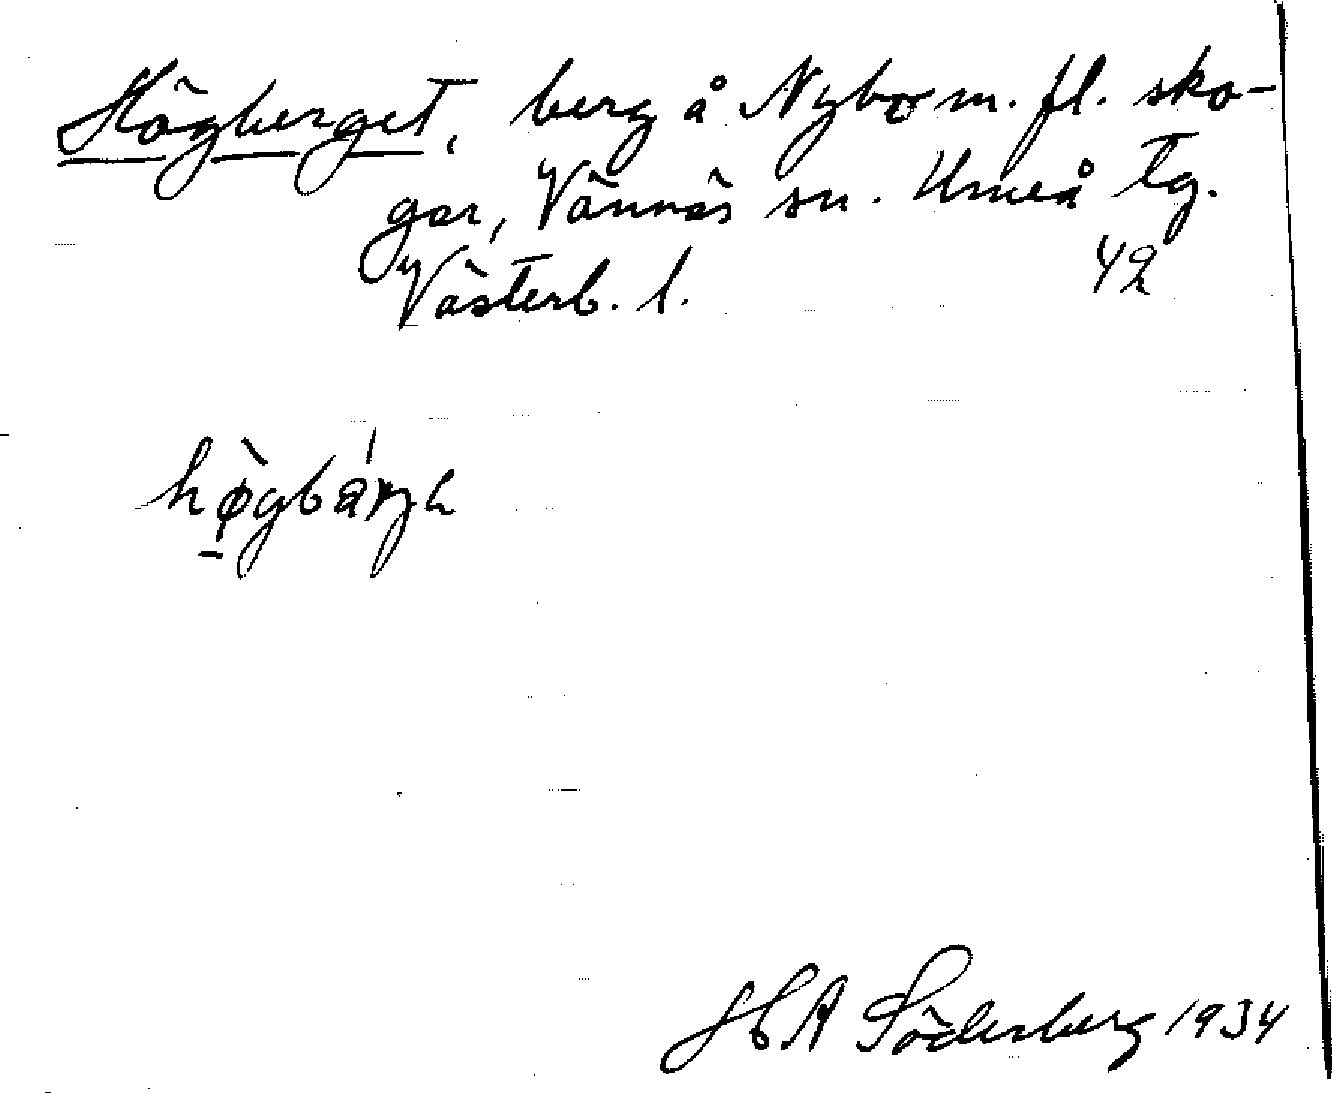 Högberget, berg å Nybo m. fl. sko-
gar, Vännäs sn. Umeå tg.
Västerb. l. 42
H A Söderberg 1934